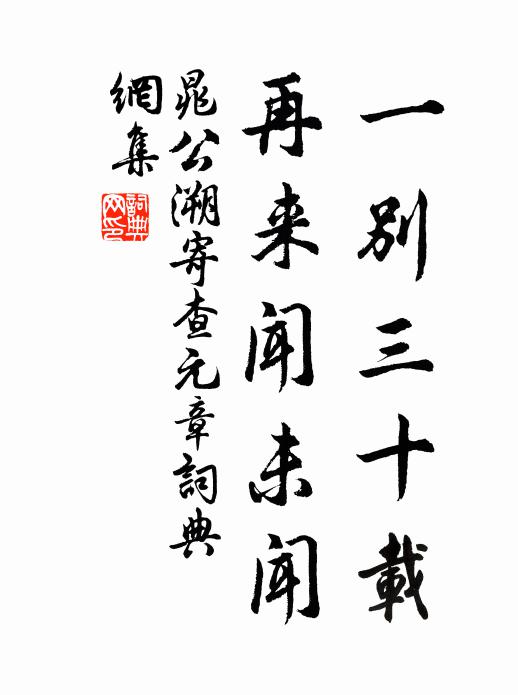 一别三十載
再来聞未聞
晁公溯寄查元章詞典
網集
詞典網印